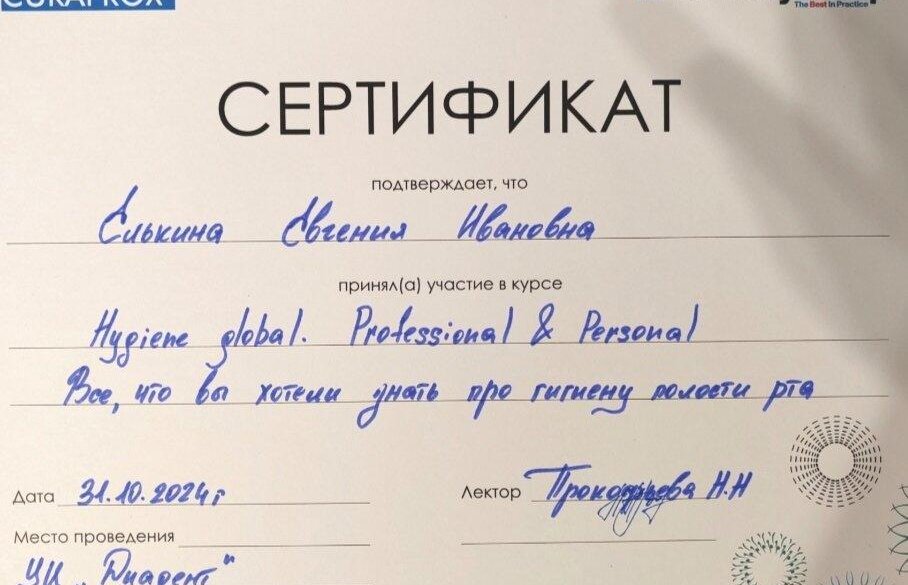 CURAPROX
The Best In Practice
СЕРТИФИКАТ
подтверждает, что
Елькина Евгения Ивановна
принял(а) участие в курсе
Hygiene global. Professional & Personal
Все, что вы хотели знать про гигиену полости рта
Дата 31.10.2024г Лектор Н.Н
Место проведения
УЦ „Диадент"